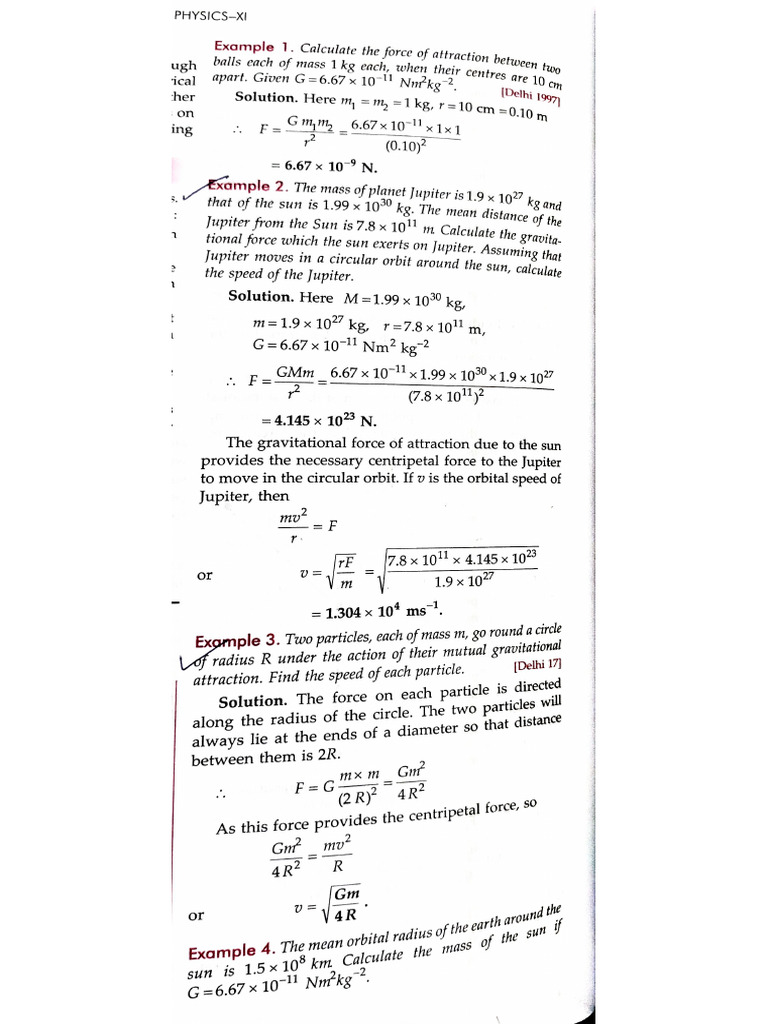 PHYSICS–XI
ugh
ical
her
on
ing
s.
:
Example 1. Calculate the force of attraction between two
balls each of mass 1 kg each, when their centres are 10 cm
apart. Given G = 6.67 × 10⁻¹¹ Nm²kg⁻².
[Delhi 1997]
Solution. Here m₁ = m₂ = 1 kg, r = 10 cm = 0.10 m
∴ F = G m₁m₂ / r² = 6.67 × 10⁻¹¹ × 1 × 1 / (0.10)²
= 6.67 × 10⁻⁹ N.
Example 2. The mass of planet Jupiter is 1.9 × 10²⁷ kg and
that of the sun is 1.99 × 10³⁰ kg. The mean distance of the
Jupiter from the Sun is 7.8 × 10¹¹ m. Calculate the gravita-
tional force which the sun exerts on Jupiter. Assuming that
Jupiter moves in a circular orbit around the sun, calculate
the speed of the Jupiter.
Solution. Here M = 1.99 × 10³⁰ kg,
m = 1.9 × 10²⁷ kg, r = 7.8 × 10¹¹ m,
G = 6.67 × 10⁻¹¹ Nm² kg⁻²
∴ F = GMm / r² = 6.67 × 10⁻¹¹ × 1.99 × 10³⁰ × 1.9 × 10²⁷ / (7.8 × 10¹¹)²
= 4.145 × 10²³ N.
The gravitational force of attraction due to the sun
provides the necessary centripetal force to the Jupiter
to move in the circular orbit. If v is the orbital speed of
Jupiter, then
mv² / r = F
or v = √(rF / m) = √(7.8 × 10¹¹ × 4.145 × 10²³ / 1.9 × 10²⁷)
= 1.304 × 10⁴ ms⁻¹.
Example 3. Two particles, each of mass m, go round a circle
of radius R under the action of their mutual gravitational
attraction. Find the speed of each particle. [Delhi 17]
Solution. The force on each particle is directed
along the radius of the circle. The two particles will
always lie at the ends of a diameter so that distance
between them is 2R.
∴ F = G m × m / (2 R)² = Gm² / 4 R²
As this force provides the centripetal force, so
Gm² / 4 R² = mv² / R
or v = √(Gm / 4 R) .
Example 4. The mean orbital radius of the earth around the
sun is 1.5 × 10⁸ km. Calculate the mass of the sun if
G = 6.67 × 10⁻¹¹ Nm²kg⁻².